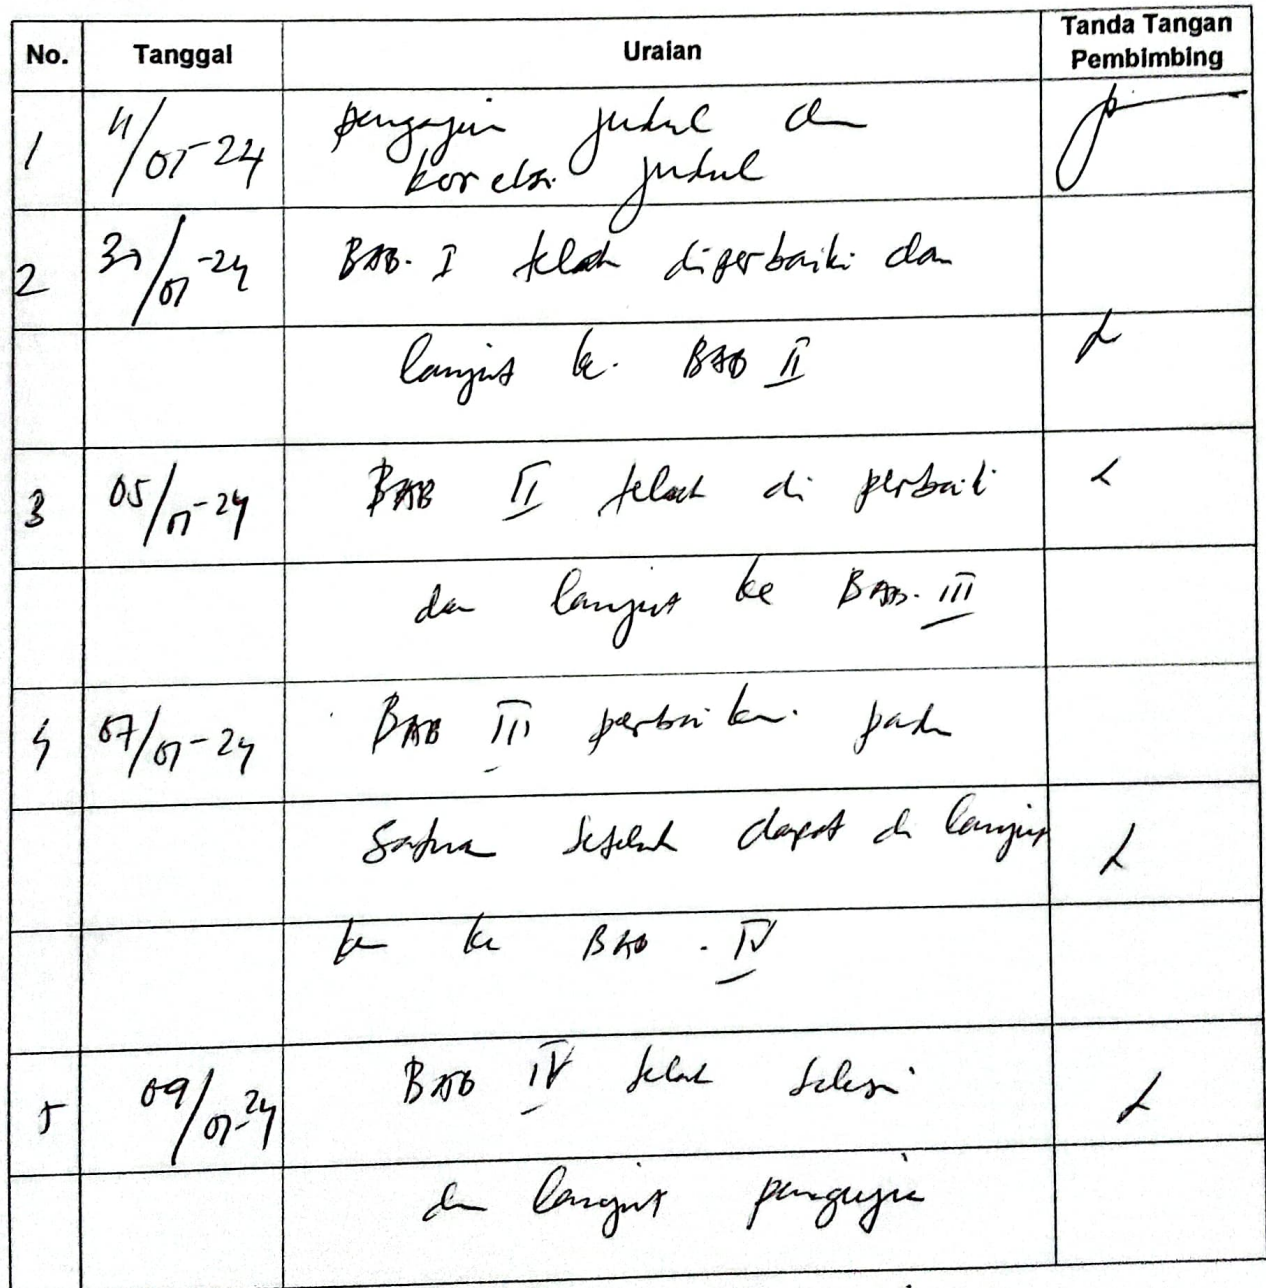 No. Tanggal Uraian Tanda Tangan Pembimbing
1 4/05-24 pengajuan judul dan
koreksi judul
2 30/05-24 BAB. I telah diperbaiki dan
lanjut ke. BAB II
3 05/07-24 BAB II telah di perbaiki
dan lanjut ke BAB. III
4 07/07-24 BAB III perbaikan pada
setelah dapat di lanjut
kan ke BAB. IV
5 09/07-24 BAB IV telah selesai
dan lanjut pengujian